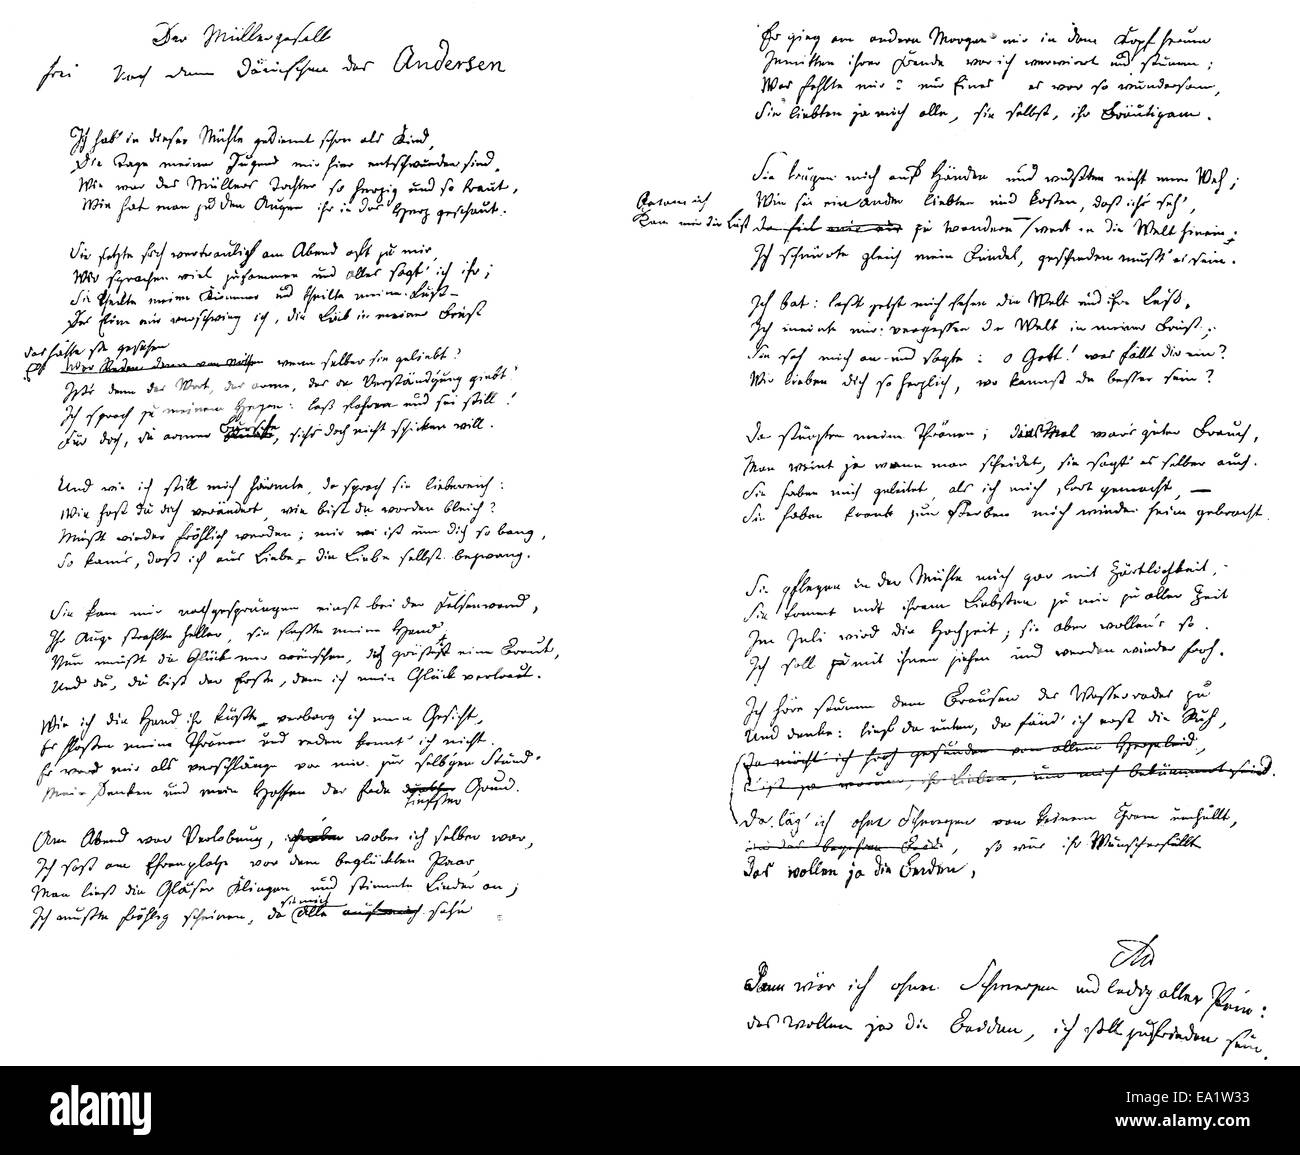 Der Müllergesell
frei nach dem Dänischen des Andersen
Ich hab' in dieser Mühle gedient schon als Kind,
Die Tage meiner Jugend mir hier entschwunden sind.
Wie war des Müllers Tochter so herzig und so traut,
Wie hat man zu den Augen ihr in das Herz geschaut.
Sie setzte sich vertraulich am Abend oft zu mir,
Wir sprachen viel zusammen und alles sagt' ich ihr;
Sie theilte meinen Kummer und theilte meine Lust –
Das Eine nur verschwieg ich, die Lieb' in meiner Brust
das hätte sie gesehen
wenn selber sie geliebt?
Ists denn des Wort, des arme, des da Verständgung giebt?
Ich sprach zu meinem Herzen: laß fahren und sei still!
Für dich, du armer Bursche, sichs doch nicht schicken will.
Und wie ich still mich härmte, da sprach sie liebereich:
Wie hast du dich verändert, wie bist du worden bleich?
Mußt wieder fröhlich werden; mir wi ist um dich so bang,
So kam's, daß ich aus Liebe, die Liebe selbst bezwang.
Sie kam mir nachgesprungen einst bei der Felsenwand,
Ihr Auge strahlte heller, sie faßte meine Hand
Nun mußt du Glück mir wünschen, du grüßest eine Braut,
Und du, du bist der Erste, dem ich mein Glück vertraut.
Wie ich die Hand ihr küßte, verbarg ich mein Gesicht,
Es flossen meine Thränen und reden konnt' ich nicht.
Es ward mir als verschlänge vor mir zur selb'gen Stund'
Mein Denken und mein Hoffen der Erde tiefster Grund.
Am Abend war Verlobung, wobei ich selber war,
Ich saß am Ehrenplatze vor dem beglückten Paar,
Man ließ die Gläser klingen und stimmte Lieder an;
Ich mußte fröhlich scheinen, da sie mich alle sahn
Es ging am andern Morgen mir in dem Kopf herum
Inmitten ihrer Freude war ich verwirrt und stumm;
Was fehlte mir? nur Eines es war so wundersam,
Sie liebten ja mich alle, sie selbst, ihr Bräutigam.
Sie trugen mich auf Händen und wußten nicht mein Weh;
Wie sie einander liebten und kosten, daß ich's seh',
Kam mir die Lust zu wandern / weit in die Welt hinein;
Ich schnürte gleich mein Bündel, geschieden mußt' es sein.
Ich bat: laßt jetzt mich sehen die Welt und ihre Lust,
Ich meinte nur: vergessen die Welt in meiner Brust;
Sie sah mich an und sagte: o Gott! was fällt dir ein?
Wir lieben dich so herzlich, wo kannst du besser sein?
Da stürzten meine Thränen; dies Mal war's guter Brauch,
Man weint ja wenn man scheidet, sie sagt' es selber auch.
Sie haben mich geleitet, als ich mich fort gemacht, –
Sie haben krank zum Sterben mich wieder heim gebracht.
Sie pflegen in der Mühle mich gar mit Zärtlichkeit,
Sie kommt mit ihrem Liebsten zu mir zu aller Zeit
Im Juli wird die Hochzeit; sie aber wollen's so.
Ich soll zu mit ihnen ziehen und werden wieder froh.
Ich höre stumm dem Brausen des Wasserrades zu
Und denke: lieg' da unten, da fänd' ich erst die Ruh,
Da möcht' ich froh gesunden von allem Herzeleid,
Da läg' ich ohne Schmerzen von keinem Gram umhüllt,
so wär' ihr Wunsch erfüllt
Das wollen ja die Beiden,
Dann wär ich ohne Schmerzen und ledig aller Pein:
das wollen ja die Beiden, ich soll zufrieden sein.
alamy stock photo
EA1W33
www.alamy.com